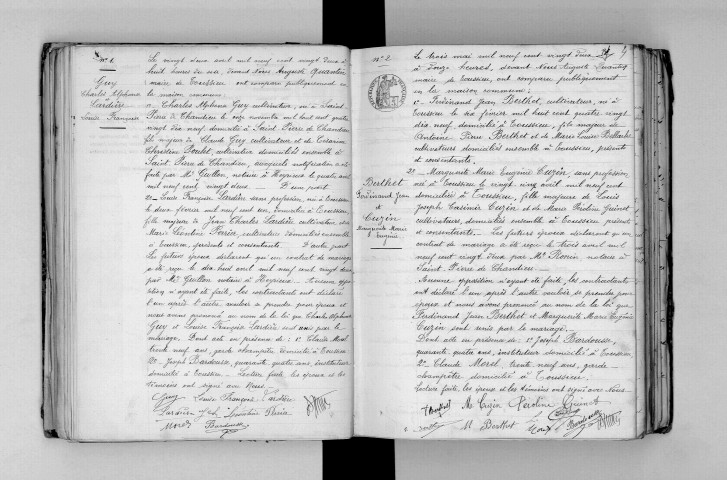 N° 1.
Guy
Charles Alphonse
&
Lardière
Louise Françoise
Le vingt deux avril mil neuf cent vingt deux à
huit heures du soir, devant Nous Auguste Quarantin
maire de Toussieu, ont comparu publiquement en
la maison commune :
1° Charles Alphonse Guy cultivateur, né à Saint
Pierre de Chandieu le onze novembre mil huit cent quatre
vingt dix neuf, domicilié à Saint Pierre de Chandieu
fils majeur de Claude Guy cultivateur et de
Poulet, cultivateurs domiciliés ensemble à
Saint Pierre de Chandieu, auxquels notification a été
faite par Me Guillon, notaire à Heyrieux le quatre avril
mil neuf cent vingt deux. D'une part
2° Louise Françoise Lardière sans profession, née à Toussieu
le deux février mil neuf cent un, domiciliée à Toussieu
fille majeure de Jean Charles Lardière cultivateur, et de
Marie Léontine Perrin, cultivateurs domiciliés ensemble
à Toussieu, présents et consentants. D'autre part
Les futurs époux déclarent qu'un contrat de mariage
a été reçu le dix huit avril mil neuf cent vingt deux
par Me Guillon notaire à Heyrieux. Aucune oppo-
sition n'ayant été faite, les contractants ont déclaré
l'un après l'autre, vouloir se prendre pour époux et
nous avons prononcé au nom de la loi que Charles Alphonse
Guy et Louise Françoise Lardière sont unis par le
mariage. Dont acte en présence de : 1° Claude Morel
trente neuf ans, garde champêtre domicilié à Toussieu
2° Joseph Bardousse, quarante quatre ans, instituteur
domicilié à Toussieu. Lecture faite les époux et les
témoins ont signé avec Nous.
Guy Louise Françoise Lardière
Lardière Léontine Perrin
Morel Bardousse
N° 2.
Berthet
Ferdinand Jean
&
Cuzin
Marguerite Marie
Eugénie
Le trois mai mil neuf cent vingt deux
à onze heures, devant Nous Auguste Quarantin
maire de Toussieu, ont comparu publiquement
en la maison commune :
1° Ferdinand Jean Berthet, cultivateur, né à
Toussieu le dix février mil huit cent quatre vingt
dix neuf, domicilié à Toussieu, fils majeur de
Antoine Pierre Berthet et de Marie Louise
cultivateurs domiciliés ensemble à Toussieu, présents
et consentants.
2° Marguerite Marie Eugénie Cuzin, sans profession,
née à Toussieu le vingt cinq avril mil neuf cent
domiciliée à Toussieu, fille majeure de Louis
Joseph Casimir Cuzin et de Marie Péroline Guinet
cultivateurs, domiciliés ensemble à Toussieu présents
et consentants. Les futurs époux déclarent qu'un
contrat de mariage a été reçu le trois avril mil
neuf cent vingt deux par Me notaire à
Saint Pierre de Chandieu.
Aucune opposition n'ayant été faite, les contractants
ont déclaré l'un après l'autre vouloir se prendre pour
époux et nous avons prononcé au nom de la loi que
Ferdinand Jean Berthet et Marguerite Marie Eugénie
Cuzin sont unis par le mariage.
Dont acte en présence de : 1° Joseph Bardousse,
quarante quatre ans, instituteur domicilié à Toussieu
2° Claude Morel trente neuf ans, garde
champêtre domicilié à Toussieu.
Lecture faite, les époux et les témoins ont signé avec Nous.
Berthet M Cuzin Péroline Guinet
M Berthet Morel Bardousse